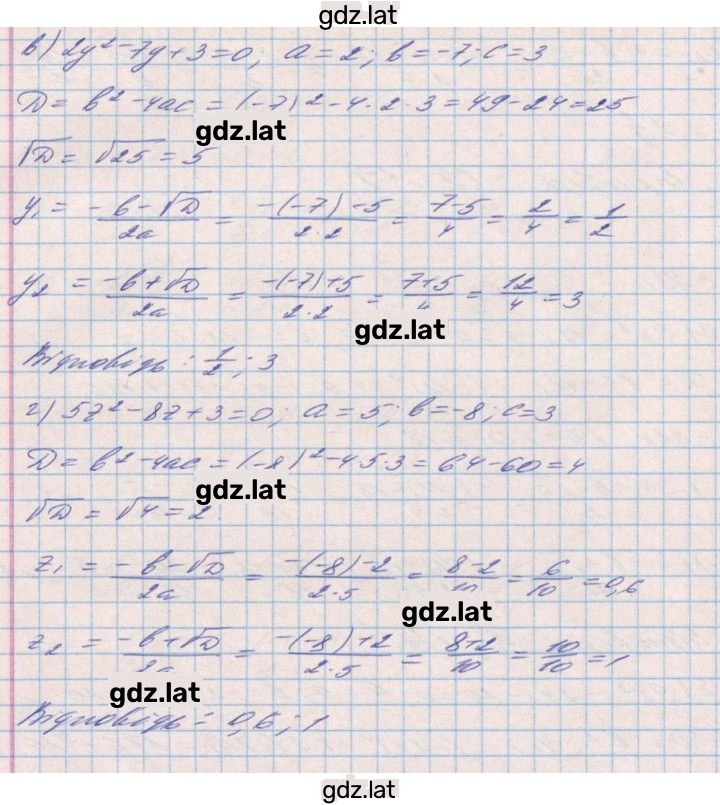 gdz.lat
в) 2y² - 7y + 3 = 0; a = 2; b = -7; c = 3
D = b² - 4ac = (-7)² - 4·2·3 = 49 - 24 = 25
gdz.lat
√D = √25 = 5
y₁ = (-b - √D)/2a = (-(-7) - 5)/(2·2) = (7 - 5)/4 = 2/4 = 1/2
y₂ = (-b + √D)/2a = (-(-7) + 5)/(2·2) = (7 + 5)/4 = 12/4 = 3
gdz.lat
Відповідь: 1/2; 3
г) 5z² - 8z + 3 = 0; a = 5; b = -8; c = 3
D = b² - 4ac = (-8)² - 4·5·3 = 64 - 60 = 4
gdz.lat
√D = √4 = 2
z₁ = (-b - √D)/2a = (-(-8) - 2)/(2·5) = (8 - 2)/10 = 6/10 = 0,6
gdz.lat
z₂ = (-b + √D)/2a = (-(-8) + 2)/(2·5) = (8 + 2)/10 = 10/10 = 1
gdz.lat
Відповідь: 0,6; 1
gdz.lat